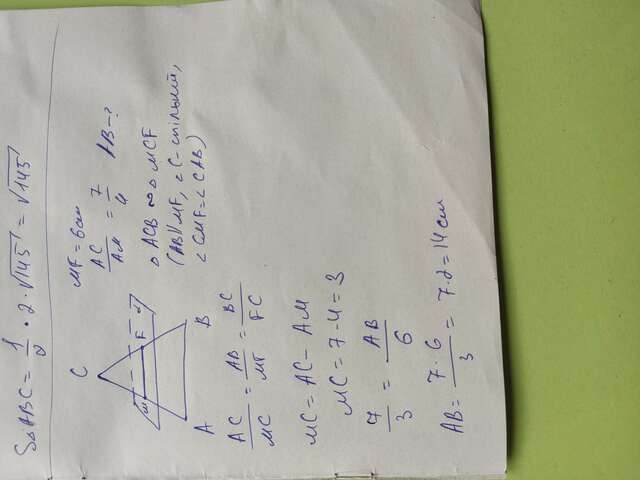 S△ABC = 1/2 · 2 · √145 = √145
C
M
F
α
A
B
MF = 6 см
AC/AM = 7/4 AB - ?
△ ACB ∾ △ MCF
(AB∥MF, ∠C - спільний,
∠CMF = ∠CAB)
AC/MC = AB/MF = BC/FC
MC = AC - AM
MC = 7 - 4 = 3
7/3 = AB/6
AB = 7·6/3 = 7·2 = 14 см